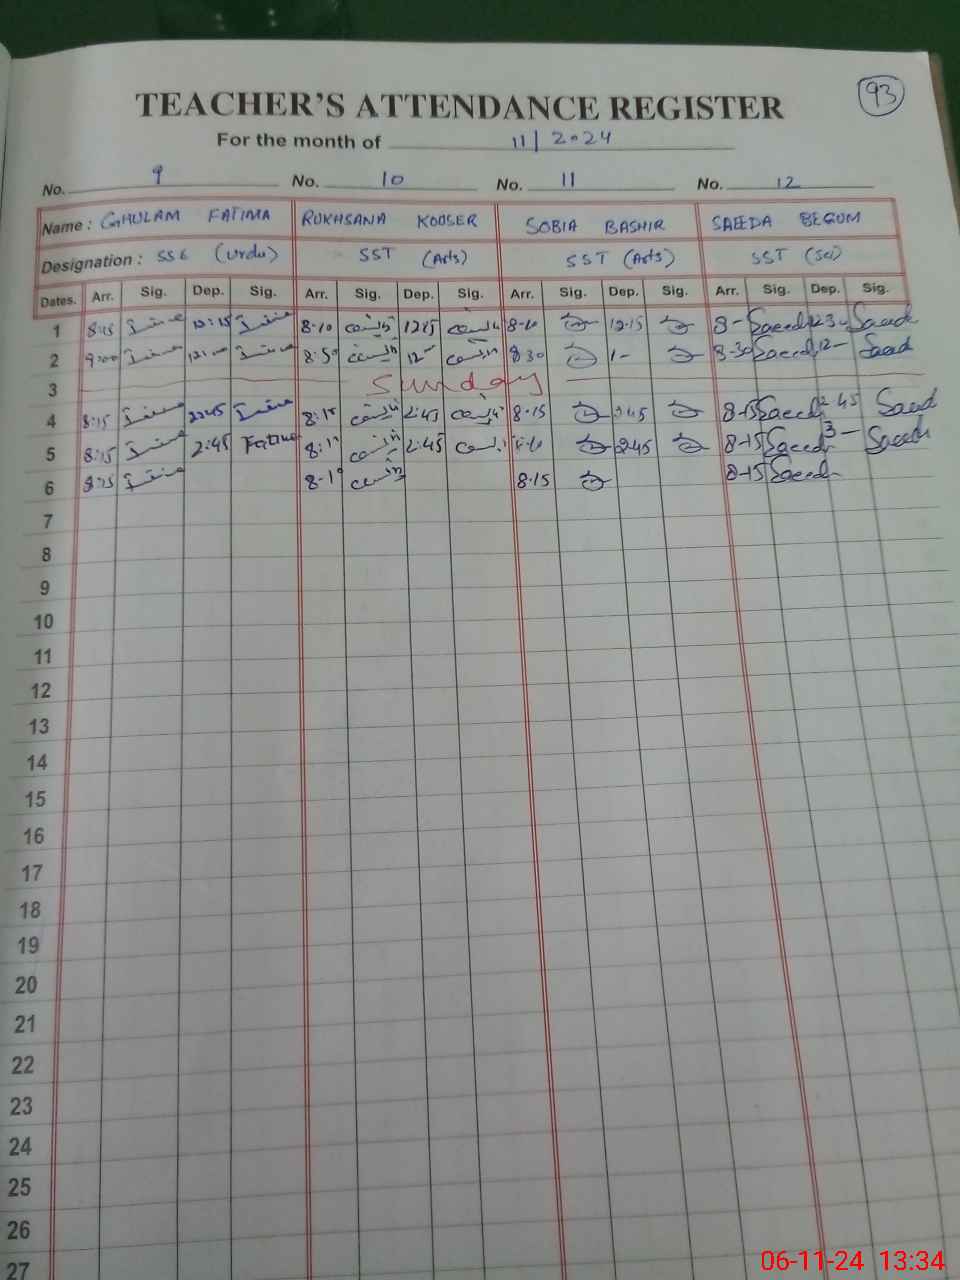 93
TEACHER'S ATTENDANCE REGISTER
For the month of 11/2024
No. 9 No. 10 No. 11 No. 12
Name : GHULAM FATIMA RUKHSANA KOUSER SOBIA BASHIR SAEEDA BEGUM
Designation : SSE (Urdu) SST (Arts) SST (Arts) SST (Sci)
Dates. Arr. Sig. Dep. Sig. Arr. Sig. Dep. Sig. Arr. Sig. Dep. Sig. Arr. Sig. Dep. Sig.
1 8:15 12:15 8-10 1215 12-15 8- Saeeda 12-30 Saeeda
2 9:00 12:00 8:50 12- 8-30 1- 8-30 Saeeda 12- Saeeda
3 Sunday
4 8:15 2:45 8:15 2:45 8-15 2:45 8-15 Saeeda 2-45 Saeeda
5 8:15 2:45 Fatima 2:45 2-45 8-15 Saeeda 3- Saeeda
6 8:15 8-10 8-15 8-15 Saeeda
7
8
9
10
11
12
13
14
15
16
17
18
19
20
21
22
23
24
25
26
27
06-11-24 13:34